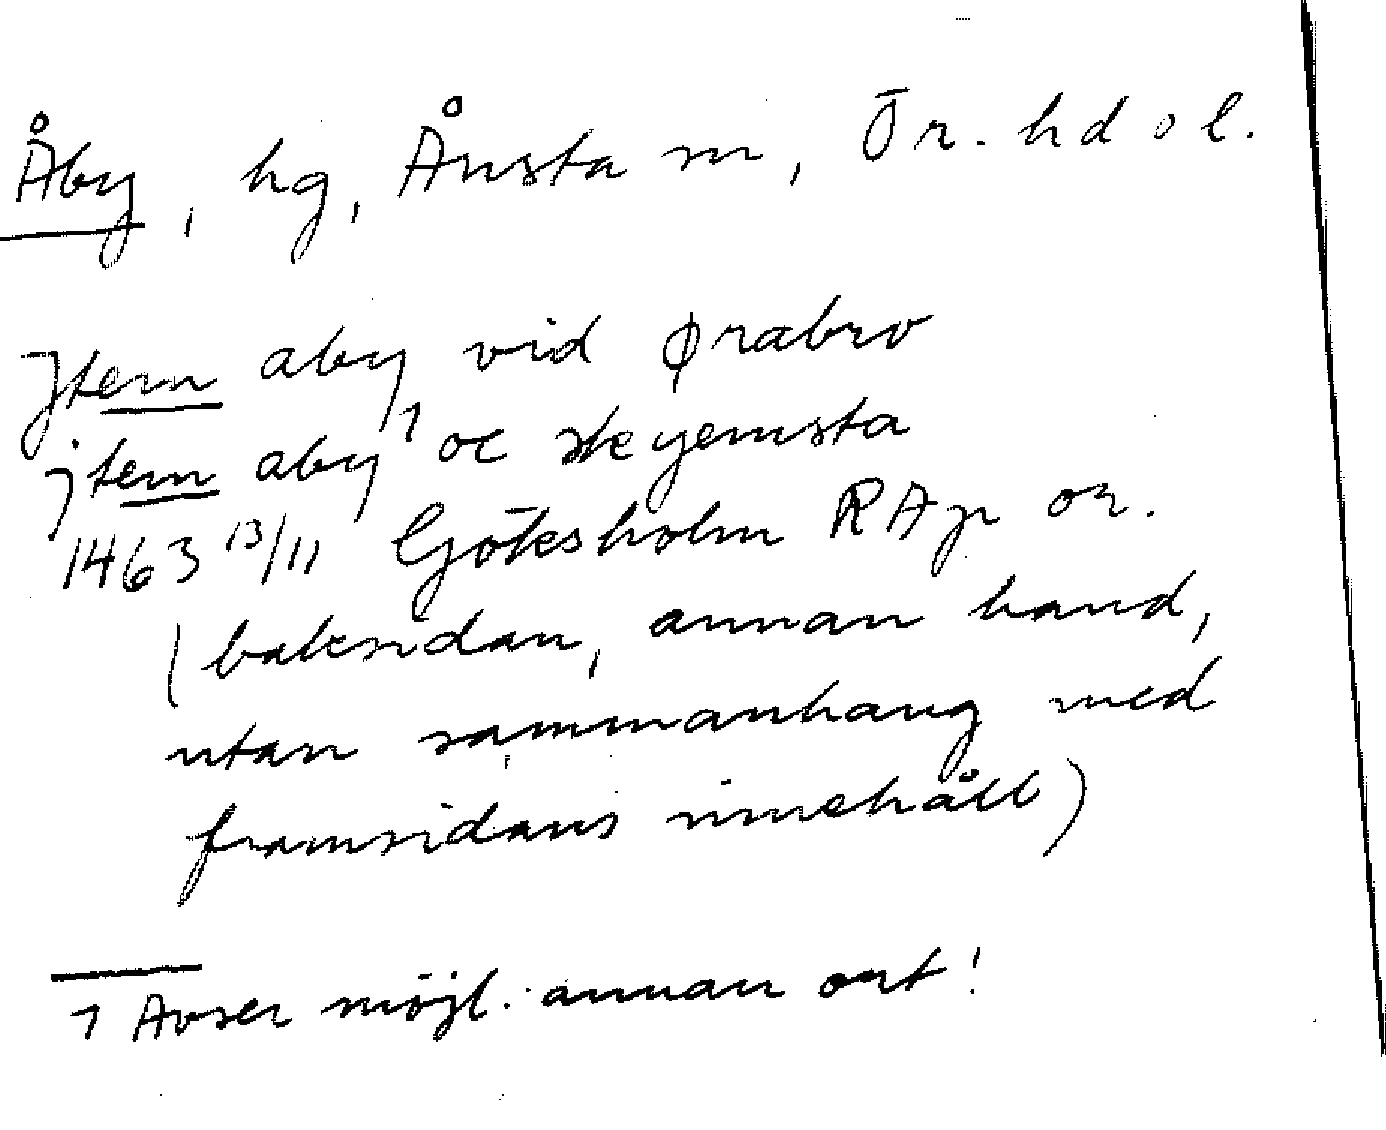 Åby, hg, Ånsta sn, Ör. hd o l.
Jtem aby vid ørabro
jtem aby¹ oc skyemsta
1463 13/11 Göksholm RAp or.
(baksidan, annan hand,
utan sammanhang med
framsidans innehåll)
1 Avser möjl. annan ort!